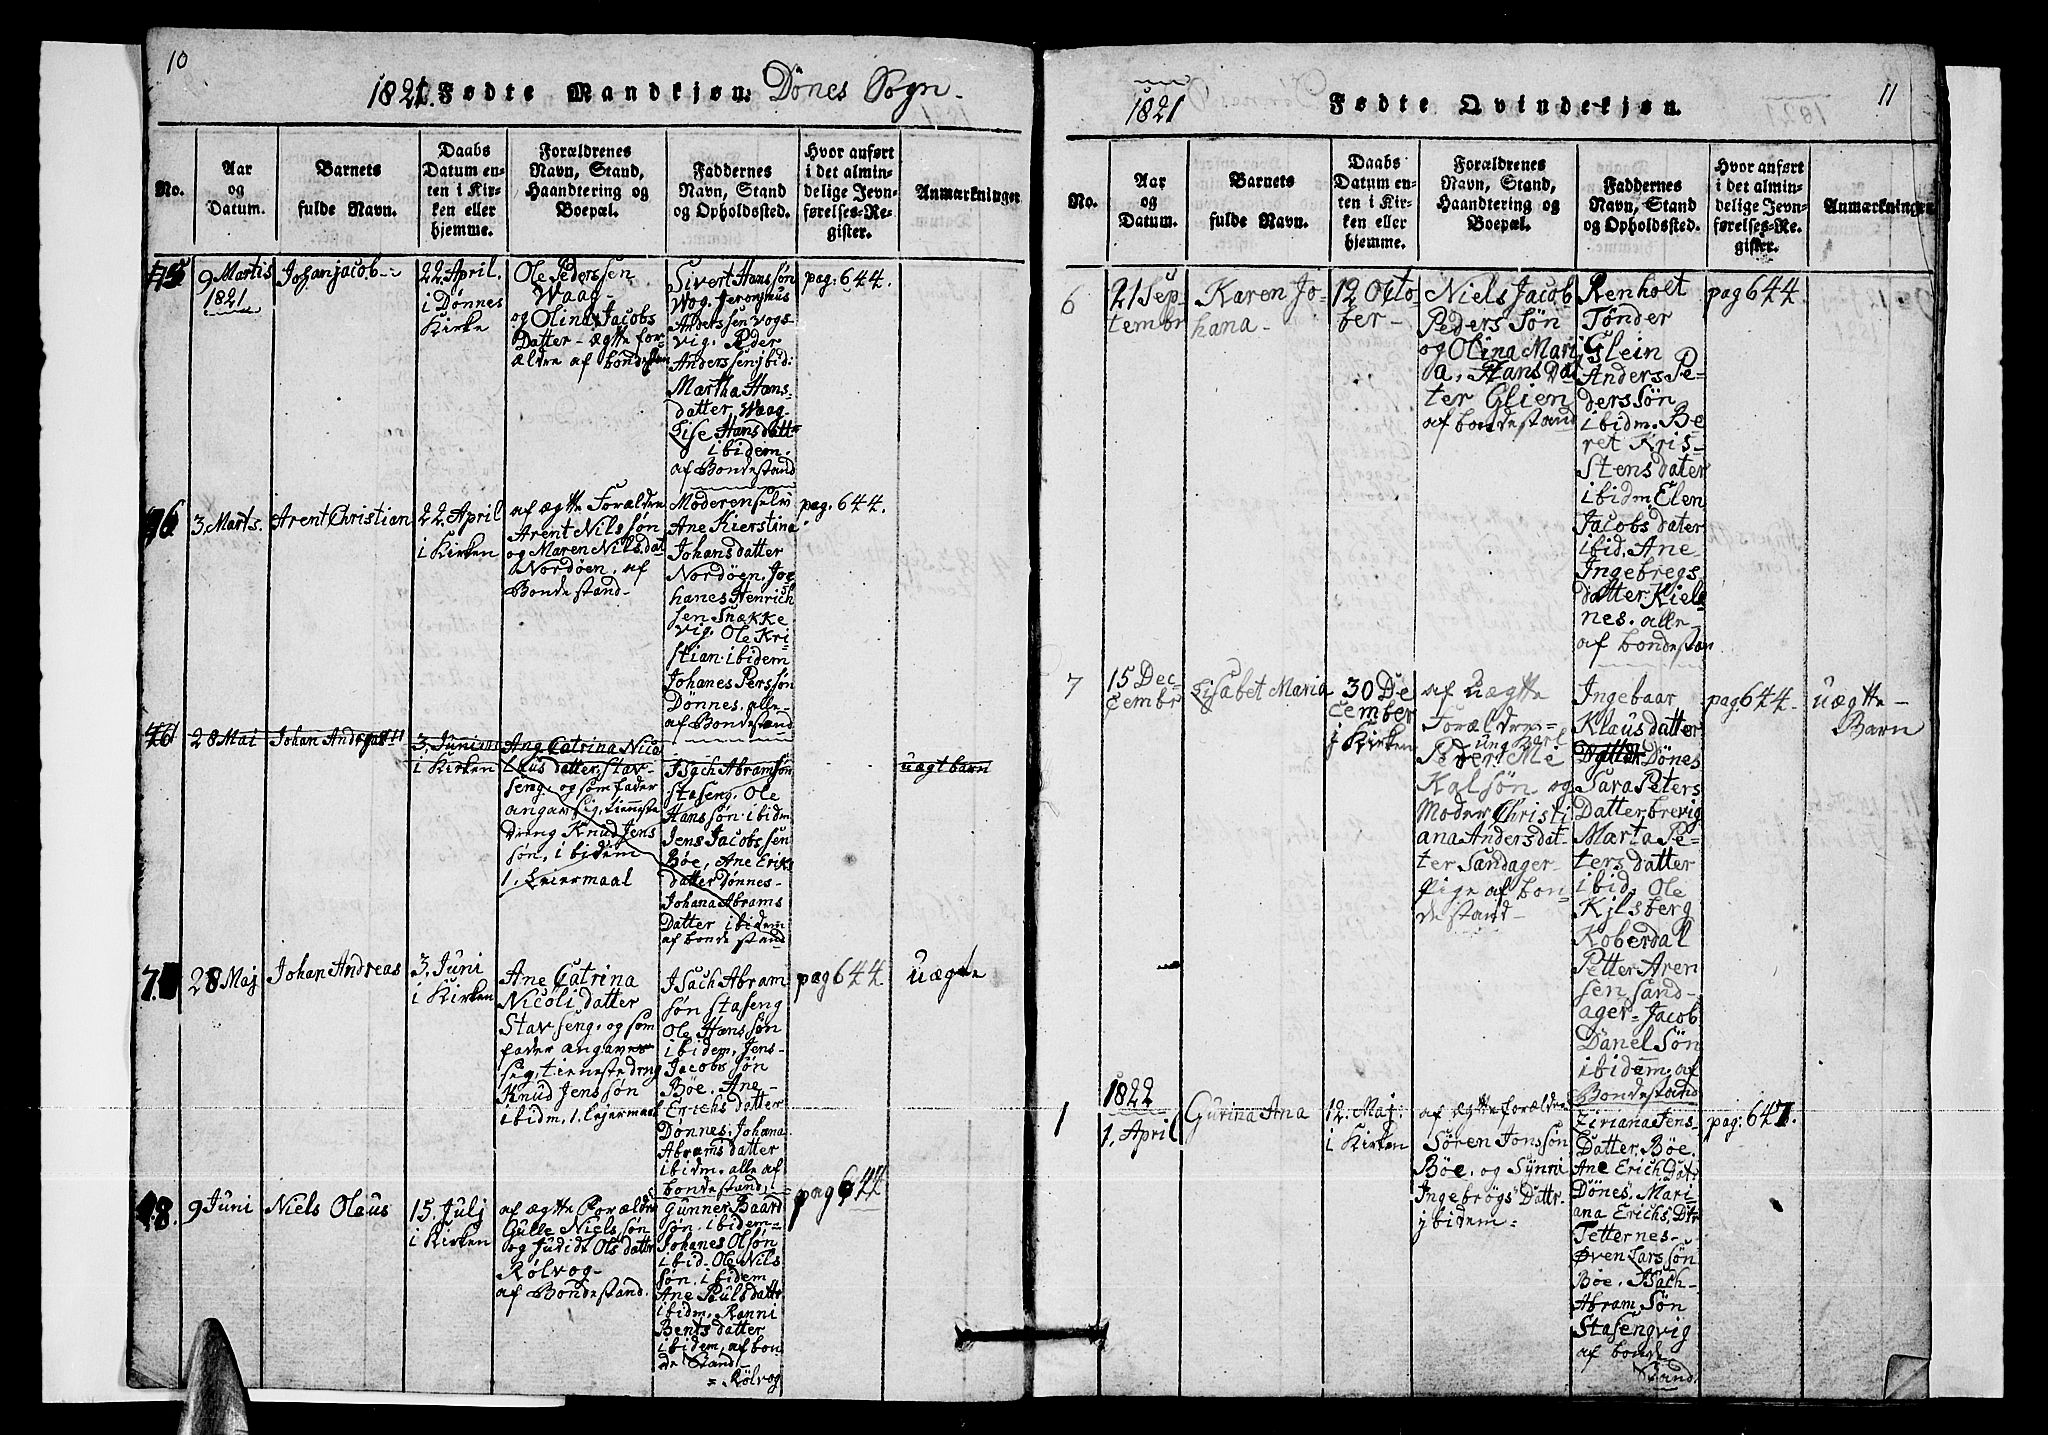 10
1821. Fødte Mandkjøn. Dönes Sogn.
No.
Aar
og
Datum.
Barnets
fulde Navn.
Daabs
Datum en-
ten i Kir-
ken eller
hjemme.
Forældrenes
Navn, Stand,
Haandtering og
Boepæl.
Faddernes
Navn, Stand
og Opholdssted.
Hvor anført
i det almin-
delige Jevn-
førelses-Re-
gister.
Anmærkninger
9 Martis
1821
Johan jacob
22. April.
i Dønnes
Kirke
Ole Pederssen
Waag
og Olina Jacobs
Datter - ægtte for-
ældre af bonde
Sivert Hanssøn
Wog. Jeronimus
Anderssen vogs-
vig. Peder
Anderssen ibid:
Martha Hans-
datter, Waag-
Lise Hansdatt
ibidem.
af Bondestand
pag: 644.
3. Marts.
Arent Christian
22 April
i Kirken
af ægtte Forældre
Arent Nilssøn
og Maren Nilsdat
Nordöen. af
Bondestand
Moderen selv
Ane Kierstina
Johansdatter
Nordöen. Jo-
hanes Henrich
sen Snække
vig. Ole Kri-
stian ibidem
Johanes Perssøn
Dönnes. alle
af Bondestand
pag. 644.
28 Mai
Johan Andreas
3. Juni
i Kirken
Ane Catrina Nico
laus datter, stav-
seng. og som fader
angav sig, tieneste
dreng Knud Jens
søn, ibidem
1. Leiermaal
Isach Abramsøn
Staseng. Ole
Hanssøn. ibidm
Jens Jacobssen
Bøe, Ane Eriks
datter Dønnes-
Johana Abrams
Datter ibidem
af bondestand
uægt barn
28 Maj
Johan Andreas
3. Juni
i Kirken
Ane Catrina
Nicoli datter
Stavseng. og som
fader angaves
sig, tienestedreng
Knud Jenssøn
ibidm, 1. lejermaal
Isach Abram
søn staseng
Ole Hanssøn
ibidem, Jens-
Jacobssøn
Bøe. Ane-
Erichsdatter
Dønnes. Johana
Abramsdatter
ibidm. alle af
bondestand.
pag 644.
uægte
18.
9 Juni
Niels Olaus
15. Julj
i Kirken
af ægtte Forældre
Gulle Nielssøn
og Judidt Olsdatter
Rölvog-
af Bondestand.
Gunner Baard
søn. ibidem-
Johanes Olsøn
ibid. Ole Nils
søn. ibidem
Ane Pouls datter
ibidm. Ranni
Bentsdatter
ibidem, af bon
de Stand-
= Rölvog
pag 644
11
1821 Fødte Qvindekjøn.
No.
Aar
og
Datum.
Barnets
fulde Navn.
Daabs
Datum en-
ten i Kir-
ken eller
hjemme.
Forældrenes
Navn, Stand,
Haandtering og
Boepæl.
Faddernes
Navn, Stand
og Opholdssted.
Hvor anført
i det almin-
delige Jevn-
førelses-Re-
gister.
Anmærkninger
6
21 Sep-
tembr
Karen Jo-
hana-
12 Octo
ber-
Niels Jacob
Peders Søn
og Olina Mari
a. Hans Dat
ter Glien
af bondestand
Renholt
Tönder
Glein
Anders Pe-
derssøn
ibidm. Be
ret Kris-
Stensdater
ibidm Elen
Jacobsdater
ibid. Ane
Ingebregs
datter Kiel
nes. alle-
af bondestan
pag 644.
7
15 Dec
cembr
Lisabet Maria
30 De
cember
i Kirken
af uægtte
Forældre=
ung Karl
Peder Mi
Kalsøn og
Moder Christi
ana Andersdat-
ter Sandager
Pige af bon-
destand-
Ingebaar
Klausdatter
Dønes
Sara Peters
Datter brevig
Marta Pe-
tersdatter
ibid. Ole
Kjlsberg
Koberdal
Petter Aren
sen sand-
ager- Jacob
Danel Søn
ibidem. af
Bondestand
pag. 644.
uægtte-
Barn
1822
1
1. April
Gurina Ana
12. Maj.
i Kirken
af ægtte forældre
Sören Jonssøn
Böe. og Synni
Ingebrøgs Dattr
jbidem=
Ziriana Jens-
Datter. Böe.
Ane Erich Dat
Dönes. Mari
ana Erichs, Dtr
Tetternes-
Øven Larssøn
Böe. Isach-
Abram Søn
Stasengvig
af bonde
Stand.
pag: 647.